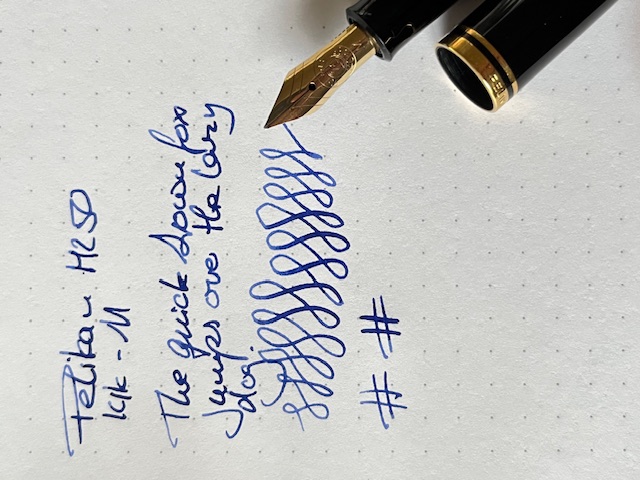 Pelikan M250
14k - M
The quick brown fox
jumps over the lazy
dog.
# #